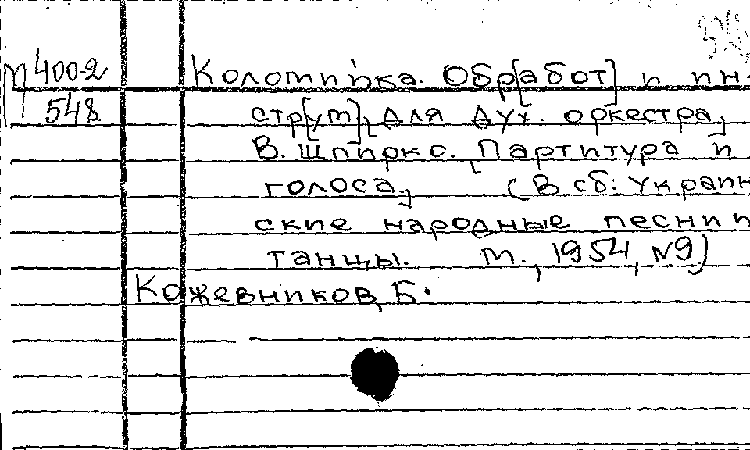 П400-2
548
Коломийка. Обр[абот] и ин-
стр[ум], для дух. оркестра,
В. Шпирко. [Партитура и
голоса] (В сб: Украин
ские народные песни и
танцы. М., 1954, №9)
Кожевников, Б.